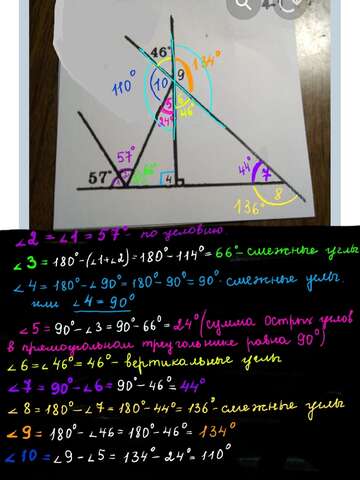 46°
134°
110°
10
9
5
6
24°
46°
57°
57°
66°
4
44°
7
8
136°
∠2 = ∠1 = 57° по условию
∠3 = 180°-(∠1+∠2)=180°-114°=66°-смежные углы
∠4 = 180°-∠90°=180°-90°=90°-смежные углы.
или ∠4=90°
∠5 = 90°-∠3=90°-66°=24°(сумма острых углов
в прямоугольном треугольнике равна 90°)
∠6=∠46°=46°-вертикальные углы
∠7=90°-∠6=90°-46°=44°
∠8=180°-∠7=180°-44°=136°-смежные углы
∠9=180°-∠46=180°-46°=134°
∠10=∠9-∠5=134°-24°=110°